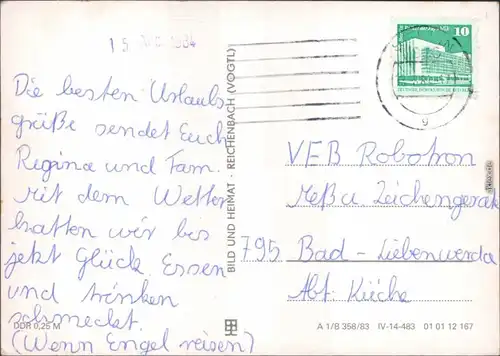 15. 1984
10
Die besten Urlaubs-
grüße sendet Euch
Regina und Fam.
Mit dem Wetter
hatten wir bis
jetzt Glück. Essen
und trinken
schmeckt.
(Wenn Engel reisen)
DDR 0,25 M
BILD UND HEIMAT · REICHENBACH (VOGTL)
VEB Robotron
Meß u Zeichengerät
795 Bad-Liebenwerda
Abt. Küche
A 1/B 358/83 IV-14-483 01 01 12 167